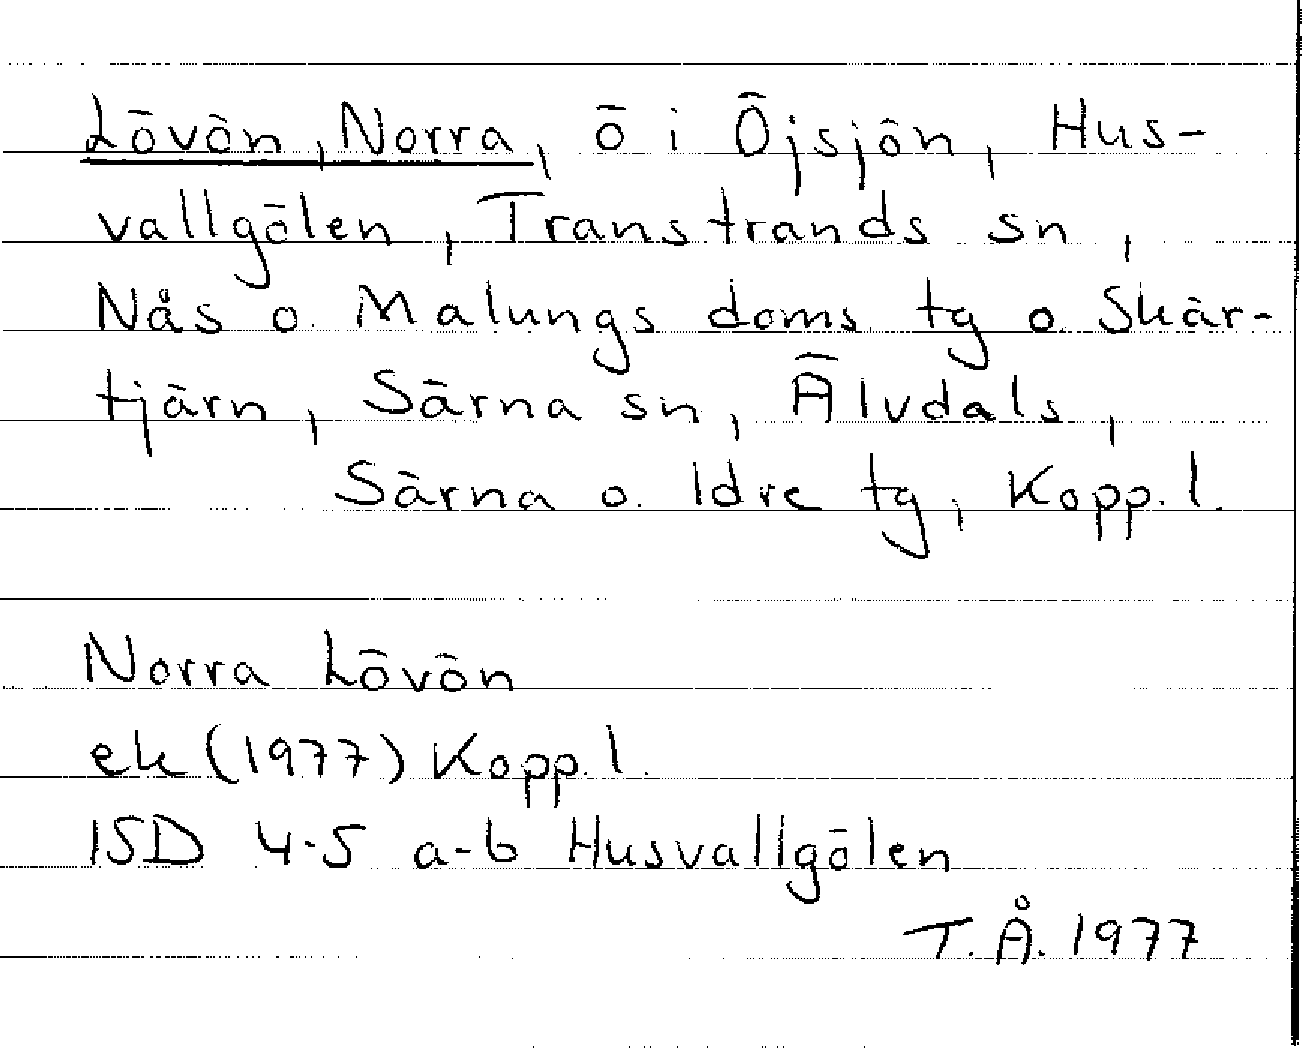 Lövön, Norra, ö i Öjsjön, Hus-
vallgölen, Transtrands sn,
Nås o. Malungs doms. tg o Skär-
tjärn, Särna sn, Älvdals,
Särna o. Idre tg, Kopp. l.
Norra Lövön
ek (1977) Kopp. l.
15D 4-5 a-b Husvallgölen
T.Å. 1977